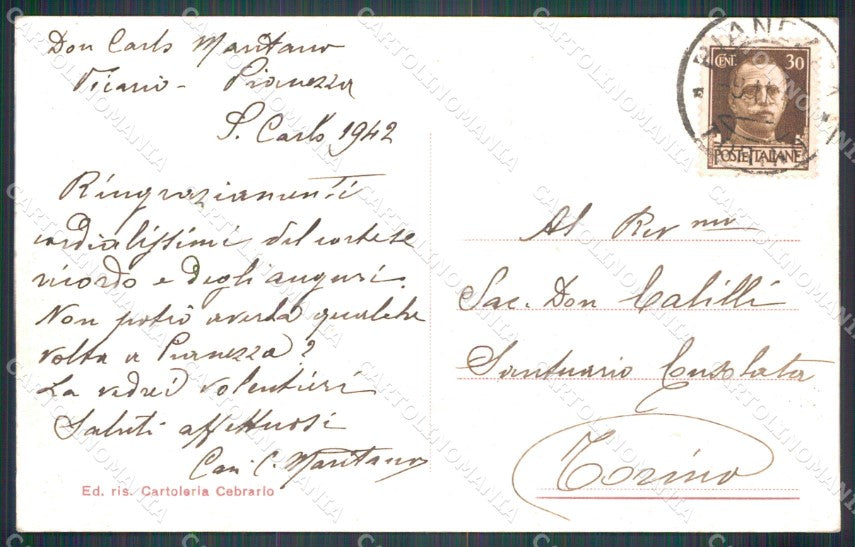 Don Carlo Maritano
Vicario - Pianezza
S. Carlo 1942
Ringraziamenti
cordialissimi del cortese
ricordo e degli auguri.
Non potrò averla qualche
volta a Pianezza?
La vedrei volentieri
Saluti affettuosi
Can. C. Maritano
Ed. ris. Cartoleria Cebrario
CENT. 30
POSTE ITALIANE
Al Rev mo
Sac. Don Calilli
Santuario Consolata
Torino
CARTOLINOMANIA